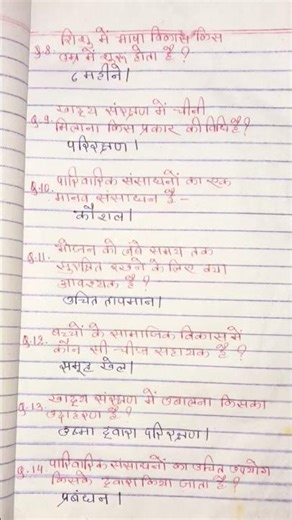 Q.8. शिशु में भाषा विकास किस
उम्र में शुरू होता है ?
६ महीने ।
Q.9. खाद्य संरक्षण में चीनी
मिलाना किस प्रकार की विधि है ?
परिरक्षण ।
Q.10. पारिवारिक संसाधनों का एक
मानव संसाधन है -
कौशल ।
Q.11. भोजन को लंबे समय तक
सुरक्षित रखने के लिए क्या
आवश्यक है ?
उचित तापमान ।
Q.12. बच्चों के सामाजिक विकास में
कौन सी चीज सहायक है ?
समूह खेल ।
Q.13. खाद्य संरक्षण में उबालना किसका
उदाहरण है ?
उष्मा द्वारा परिरक्षण ।
Q.14. पारिवारिक संसाधनों का उचित उपयोग
किसके द्वारा किया जाता है ?
प्रबंधन ।